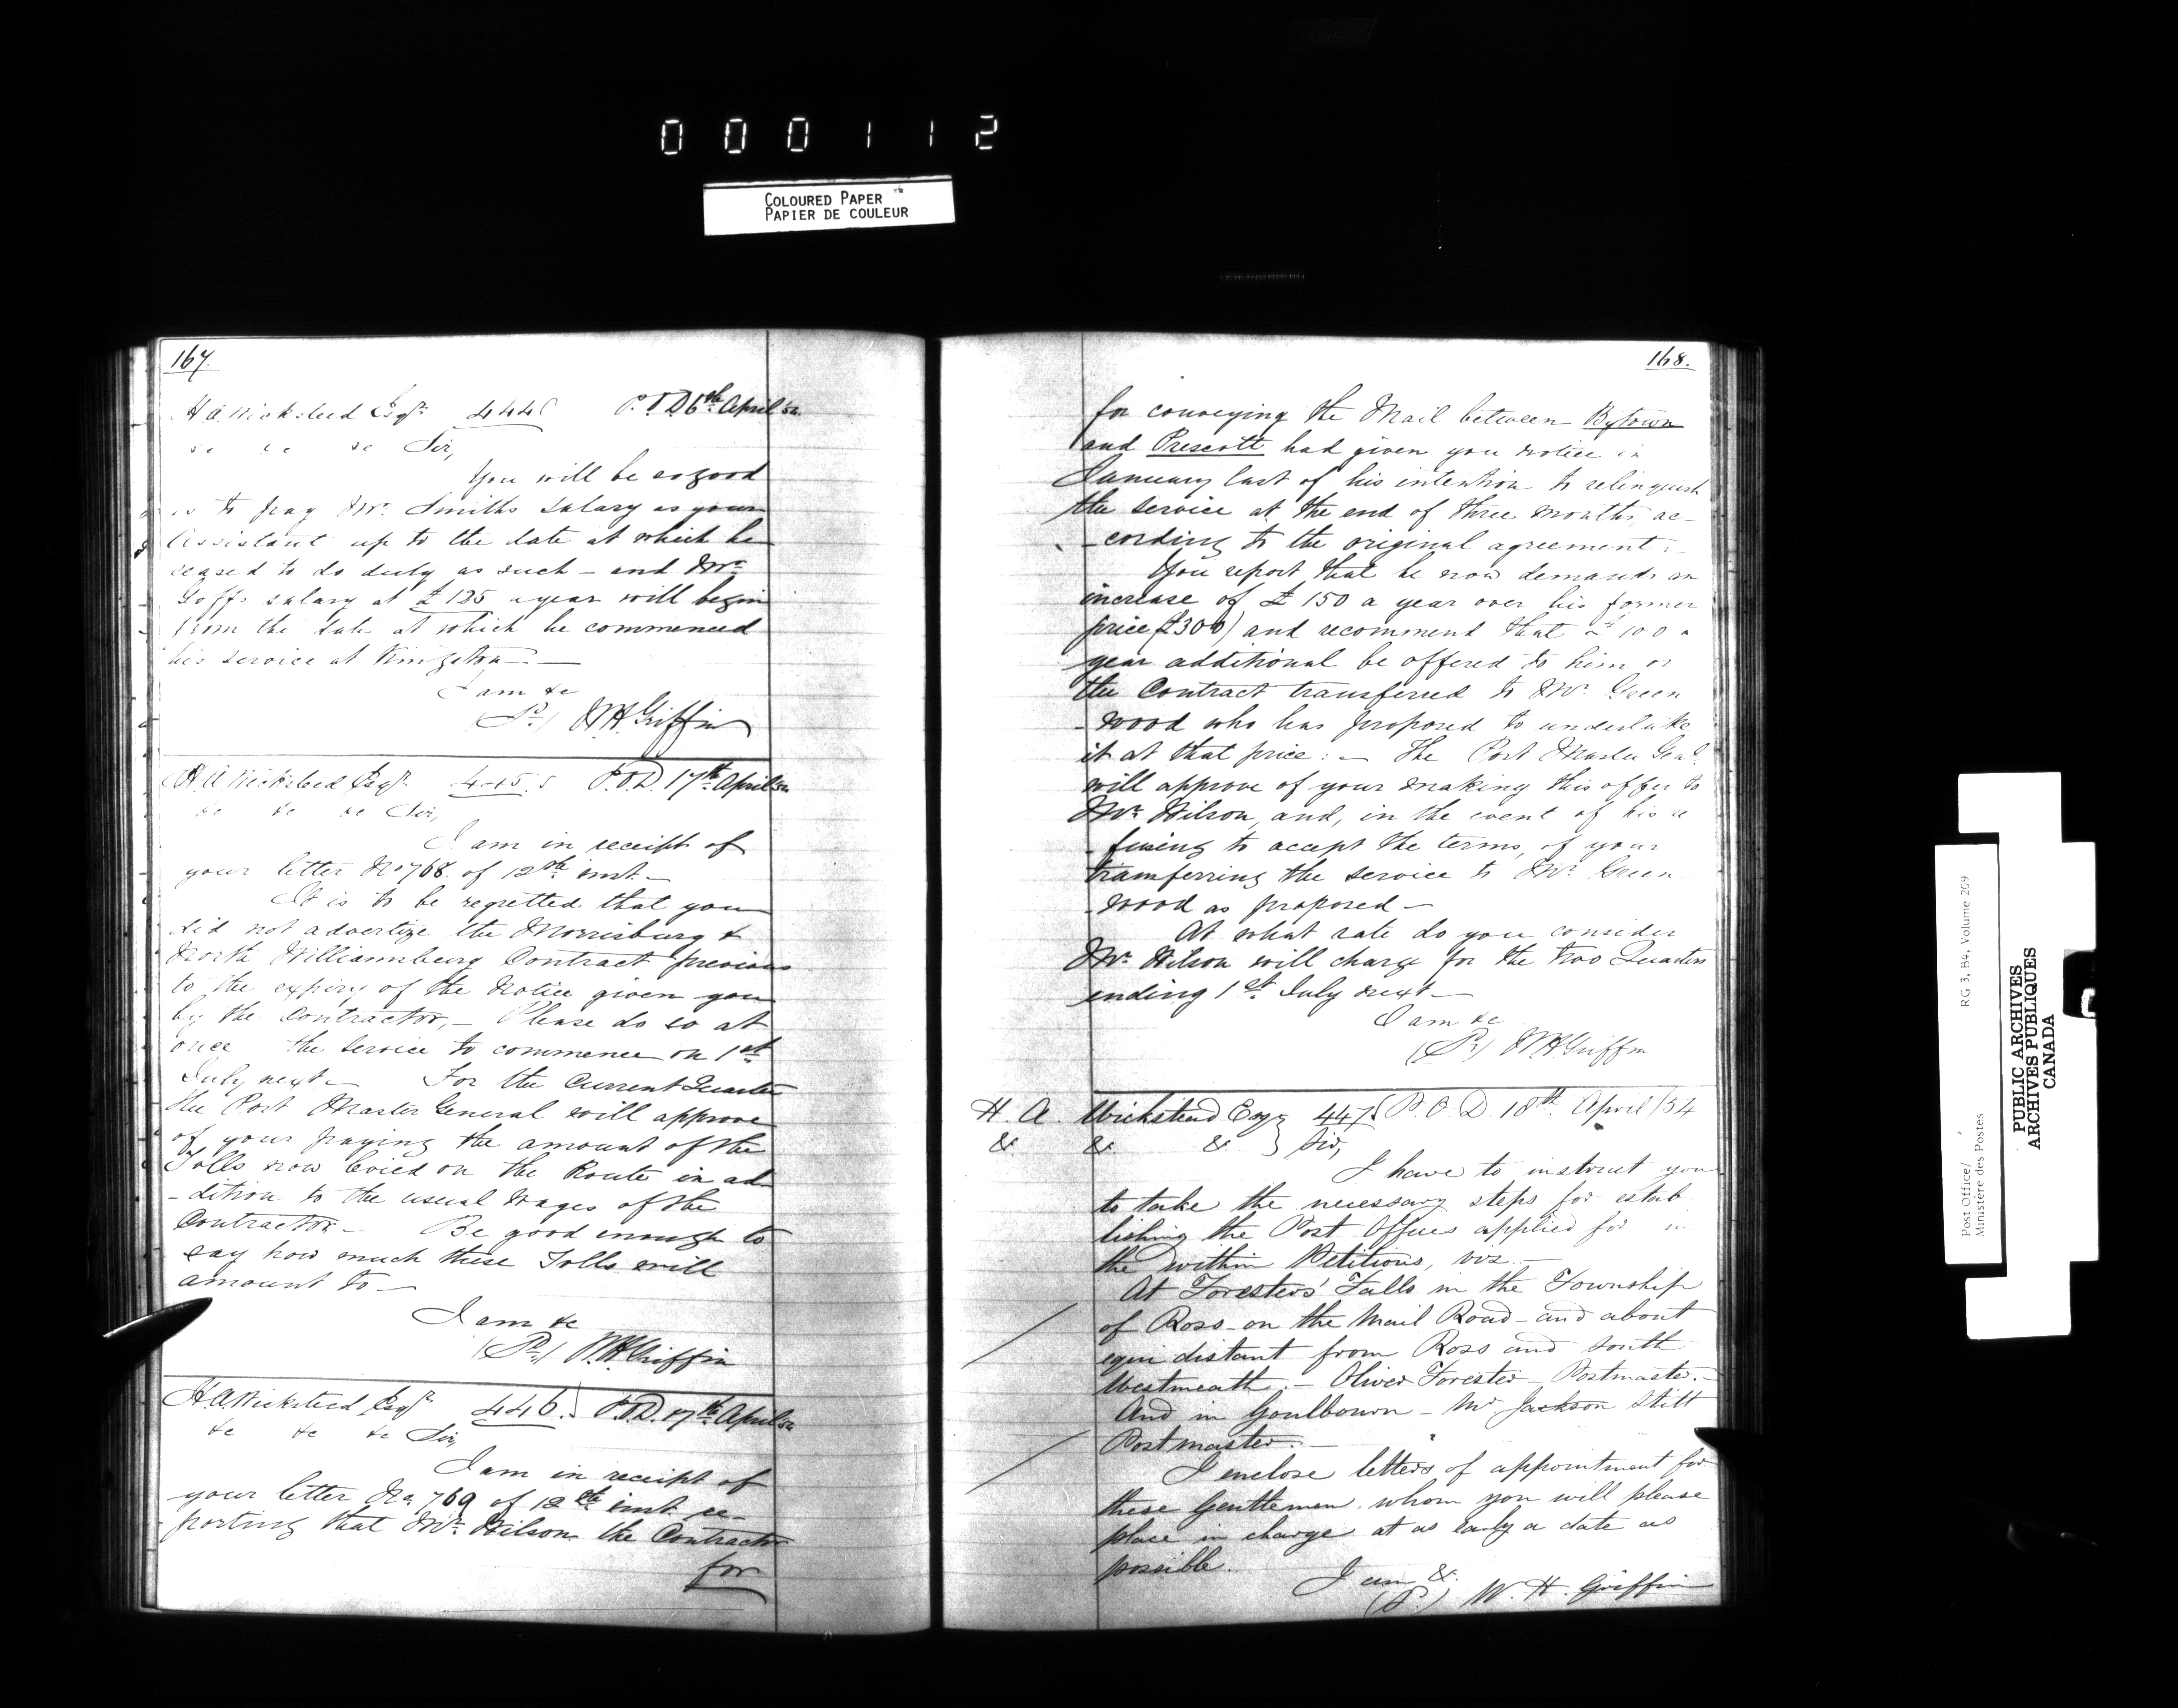 000112
COLOURED PAPER
PAPIER DE COULEUR
167.
H A Wicksteed Esqr. 444 P.O.D 6th April 54
&c &c &c Sir,
You will be so good
as to pay Mr. Smiths Salary as your
Assistant up to the date at which he
ceased to do duty as such – and Mr.
Goffs salary at £125 a year will begin
from the date at which he commenced
his service at Kingston. —
I am &c
(Sd.) W.H. Griffin
H A Wicksteed Esqr. 445. P.O.D. 17th April 54
&c &c &c Sir,
I am in receipt of
your letter No 768. of 12th inst. –
It is to be regretted that you
did not advertize the Morrisburg &
North Williamsburg Contract previous
to the expiry of the Notice given you
by the Contractor, – Please do so at
once the Service to commence on 1st
July next – For the Current Quarter
the Post Master General will approve
of your paying the amount of the
Tolls now levied on the Route in ad
-dition to the usual wages of the
Contractor – Be good enough to
say how much these Tolls will
amount to –
I am &c
(Sd.) W.H. Griffin
H. A Wicksteed Esqr. 446. P.O.D. 17th April 54
&c &c &c Sir,
I am in receipt of
your letter No. 769 of 12th inst. re-
-porting that Mr. Wilson the Contractor
for
168.
for conveying the Mail between Bytown
and Prescott had given you notice in
January last of his intention to relinquish
the service at the end of three months ac-
-cording to the original agreement. –
You report that he now demands an
increase of £150 a year over his former
price (£300) and recommend that £100 a
year additional be offered to him or
the Contract transferred to Mr. Green
-wood who has proposed to undertake
it at that price: – The Post Master Genl.
will approve of your making this offer to
Mr. Wilson, and, in the event of his re
-fusing to accept the terms, of your
transferring the service to Mr. Green
-wood as proposed –
At what rate do you consider
Mr. Wilson will charge for the two Quarters
ending 1st July next –
I am &c
(Sd.) W H Griffin
H. A. Wickstead Esqr 447. P. O. D. 18th. April /54
&. &. &. } Sir,
I have to instruct you
to take the necessary steps for estab-
lishing the Post Offices applied for in
the within Petitions, viz. –
At Foresters' Falls in the Township
of Ross – on the Mail Road – and about
equi distant from Ross and South
Westmeath. – Oliver Forester – Postmaster. –
And in Goulbourn – Mr. Jackson Stitt
Postmaster. –
I enclose letters of appointment for
these Gentlemen whom you will please
place in charge at as early a date as
possible.
I am &.
(Sd.) W. H. Griffin
Post Office/
Ministère des Postes
RG 3, B4, Volume 209
PUBLIC ARCHIVES
ARCHIVES PUBLIQUES
CANADA